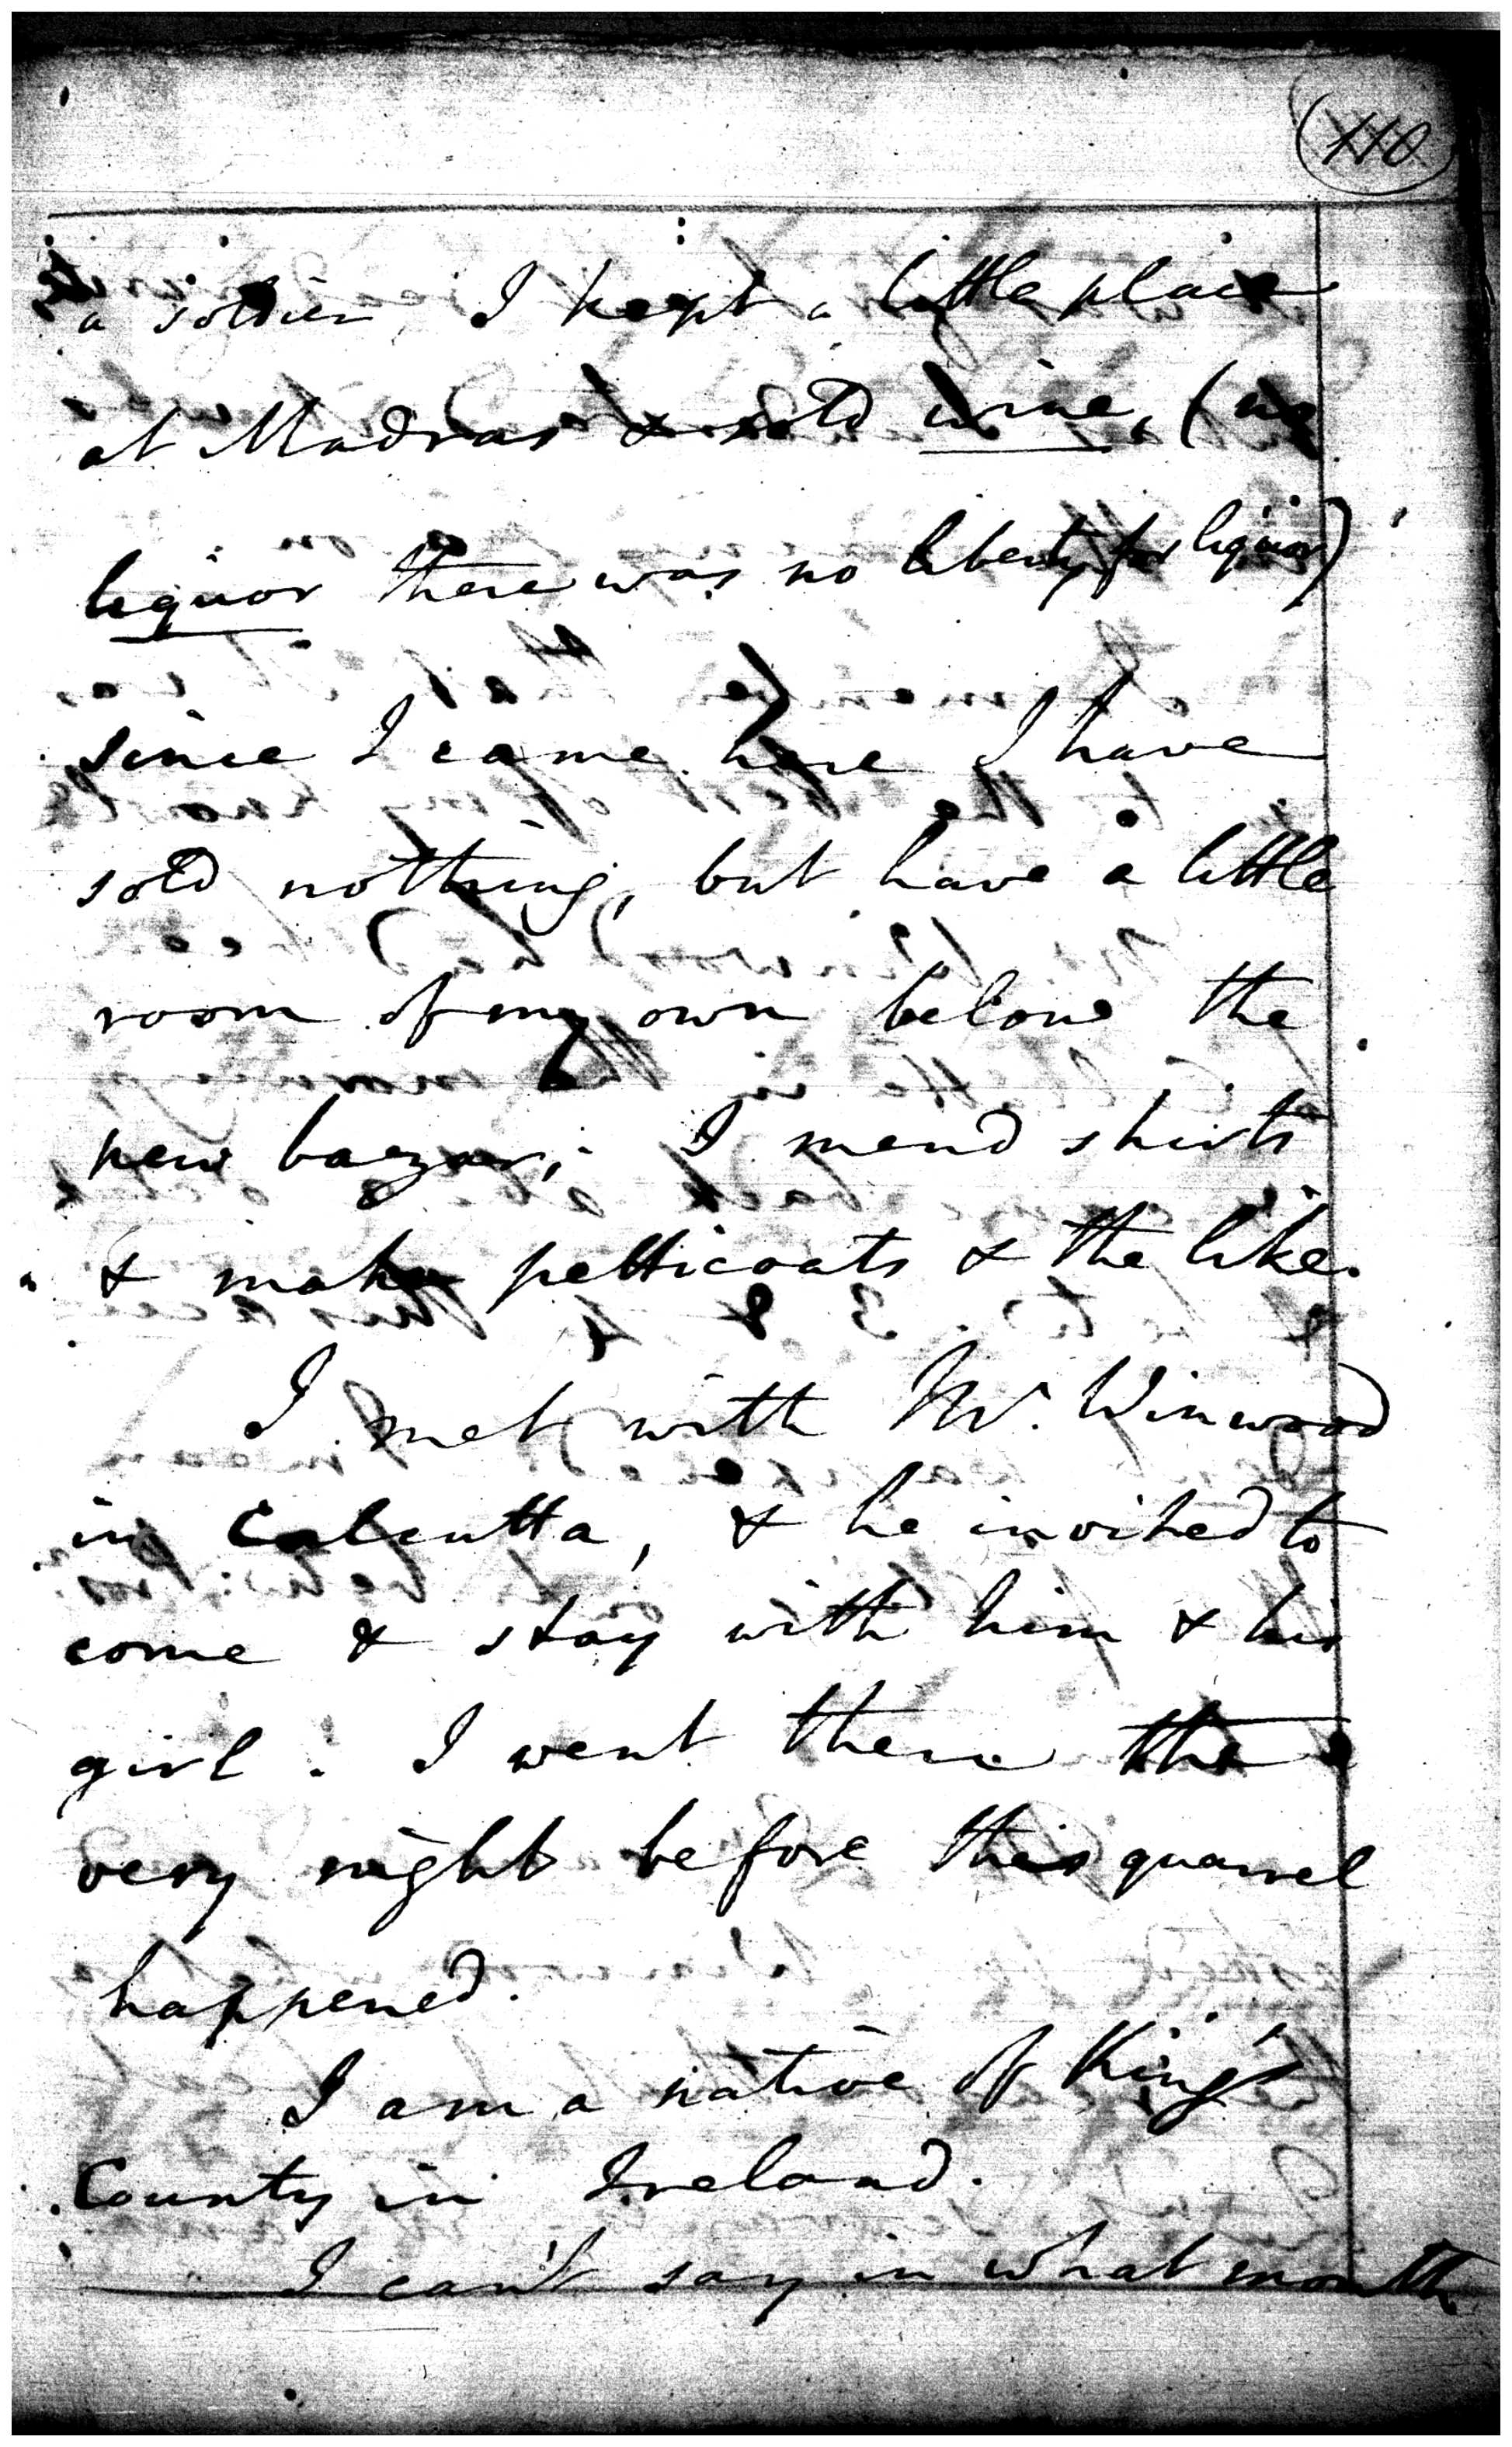 110
a soldier I kept a little place
at Madras & sold wine, (no
liquor there was no liberty for liquor)
since I came here I have
sold nothing, but have a little
room of my own belone the
new bazar; I mend shirts
& make petticoats & the like.
I met with Mr. Winwood
in Calcutta, & he invited to
come & stay with him & his
girl. I went there the
very night before this quarrel
happened.
I am a native of King's
County in Ireland.
I can't say in what month